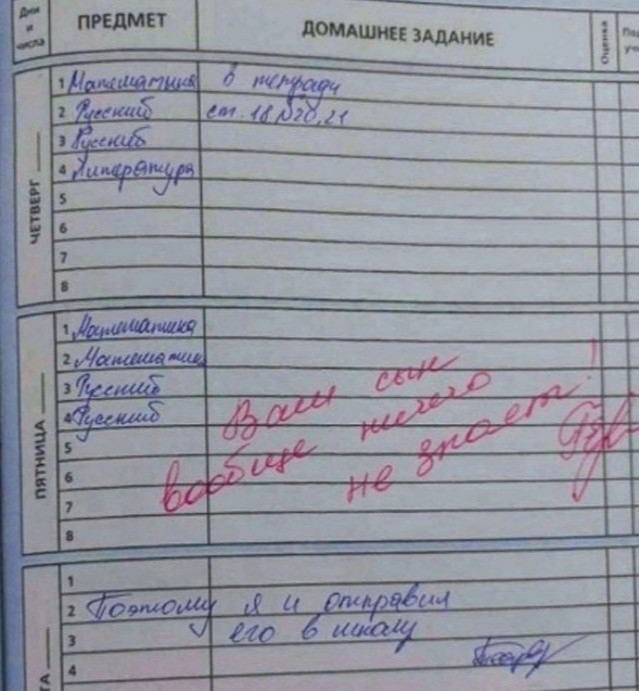 Дни и числа ПРЕДМЕТ ДОМАШНЕЕ ЗАДАНИЕ Оценка
ЧЕТВЕРГ
1 Математика в тетради
2 Русский ст. 18 №20,21
3 Русский
4 Литература
5
6
7
8
ПЯТНИЦА
1 Математика
2 Математика
3 Русский
4 Русский
5
6
7
8
Ваш сын
вообще ничего
не знает!
1
2 Поэтому я и отправил
3 его в школу
4